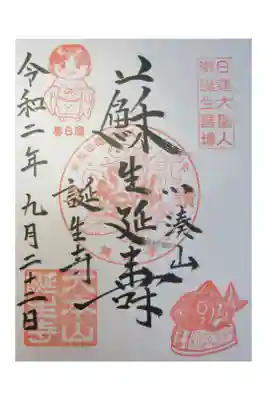 日蓮大聖人
御誕生霊場
小湊山
蘇生延寿
誕生寺
令和二年 九月二十二日
誕生寺